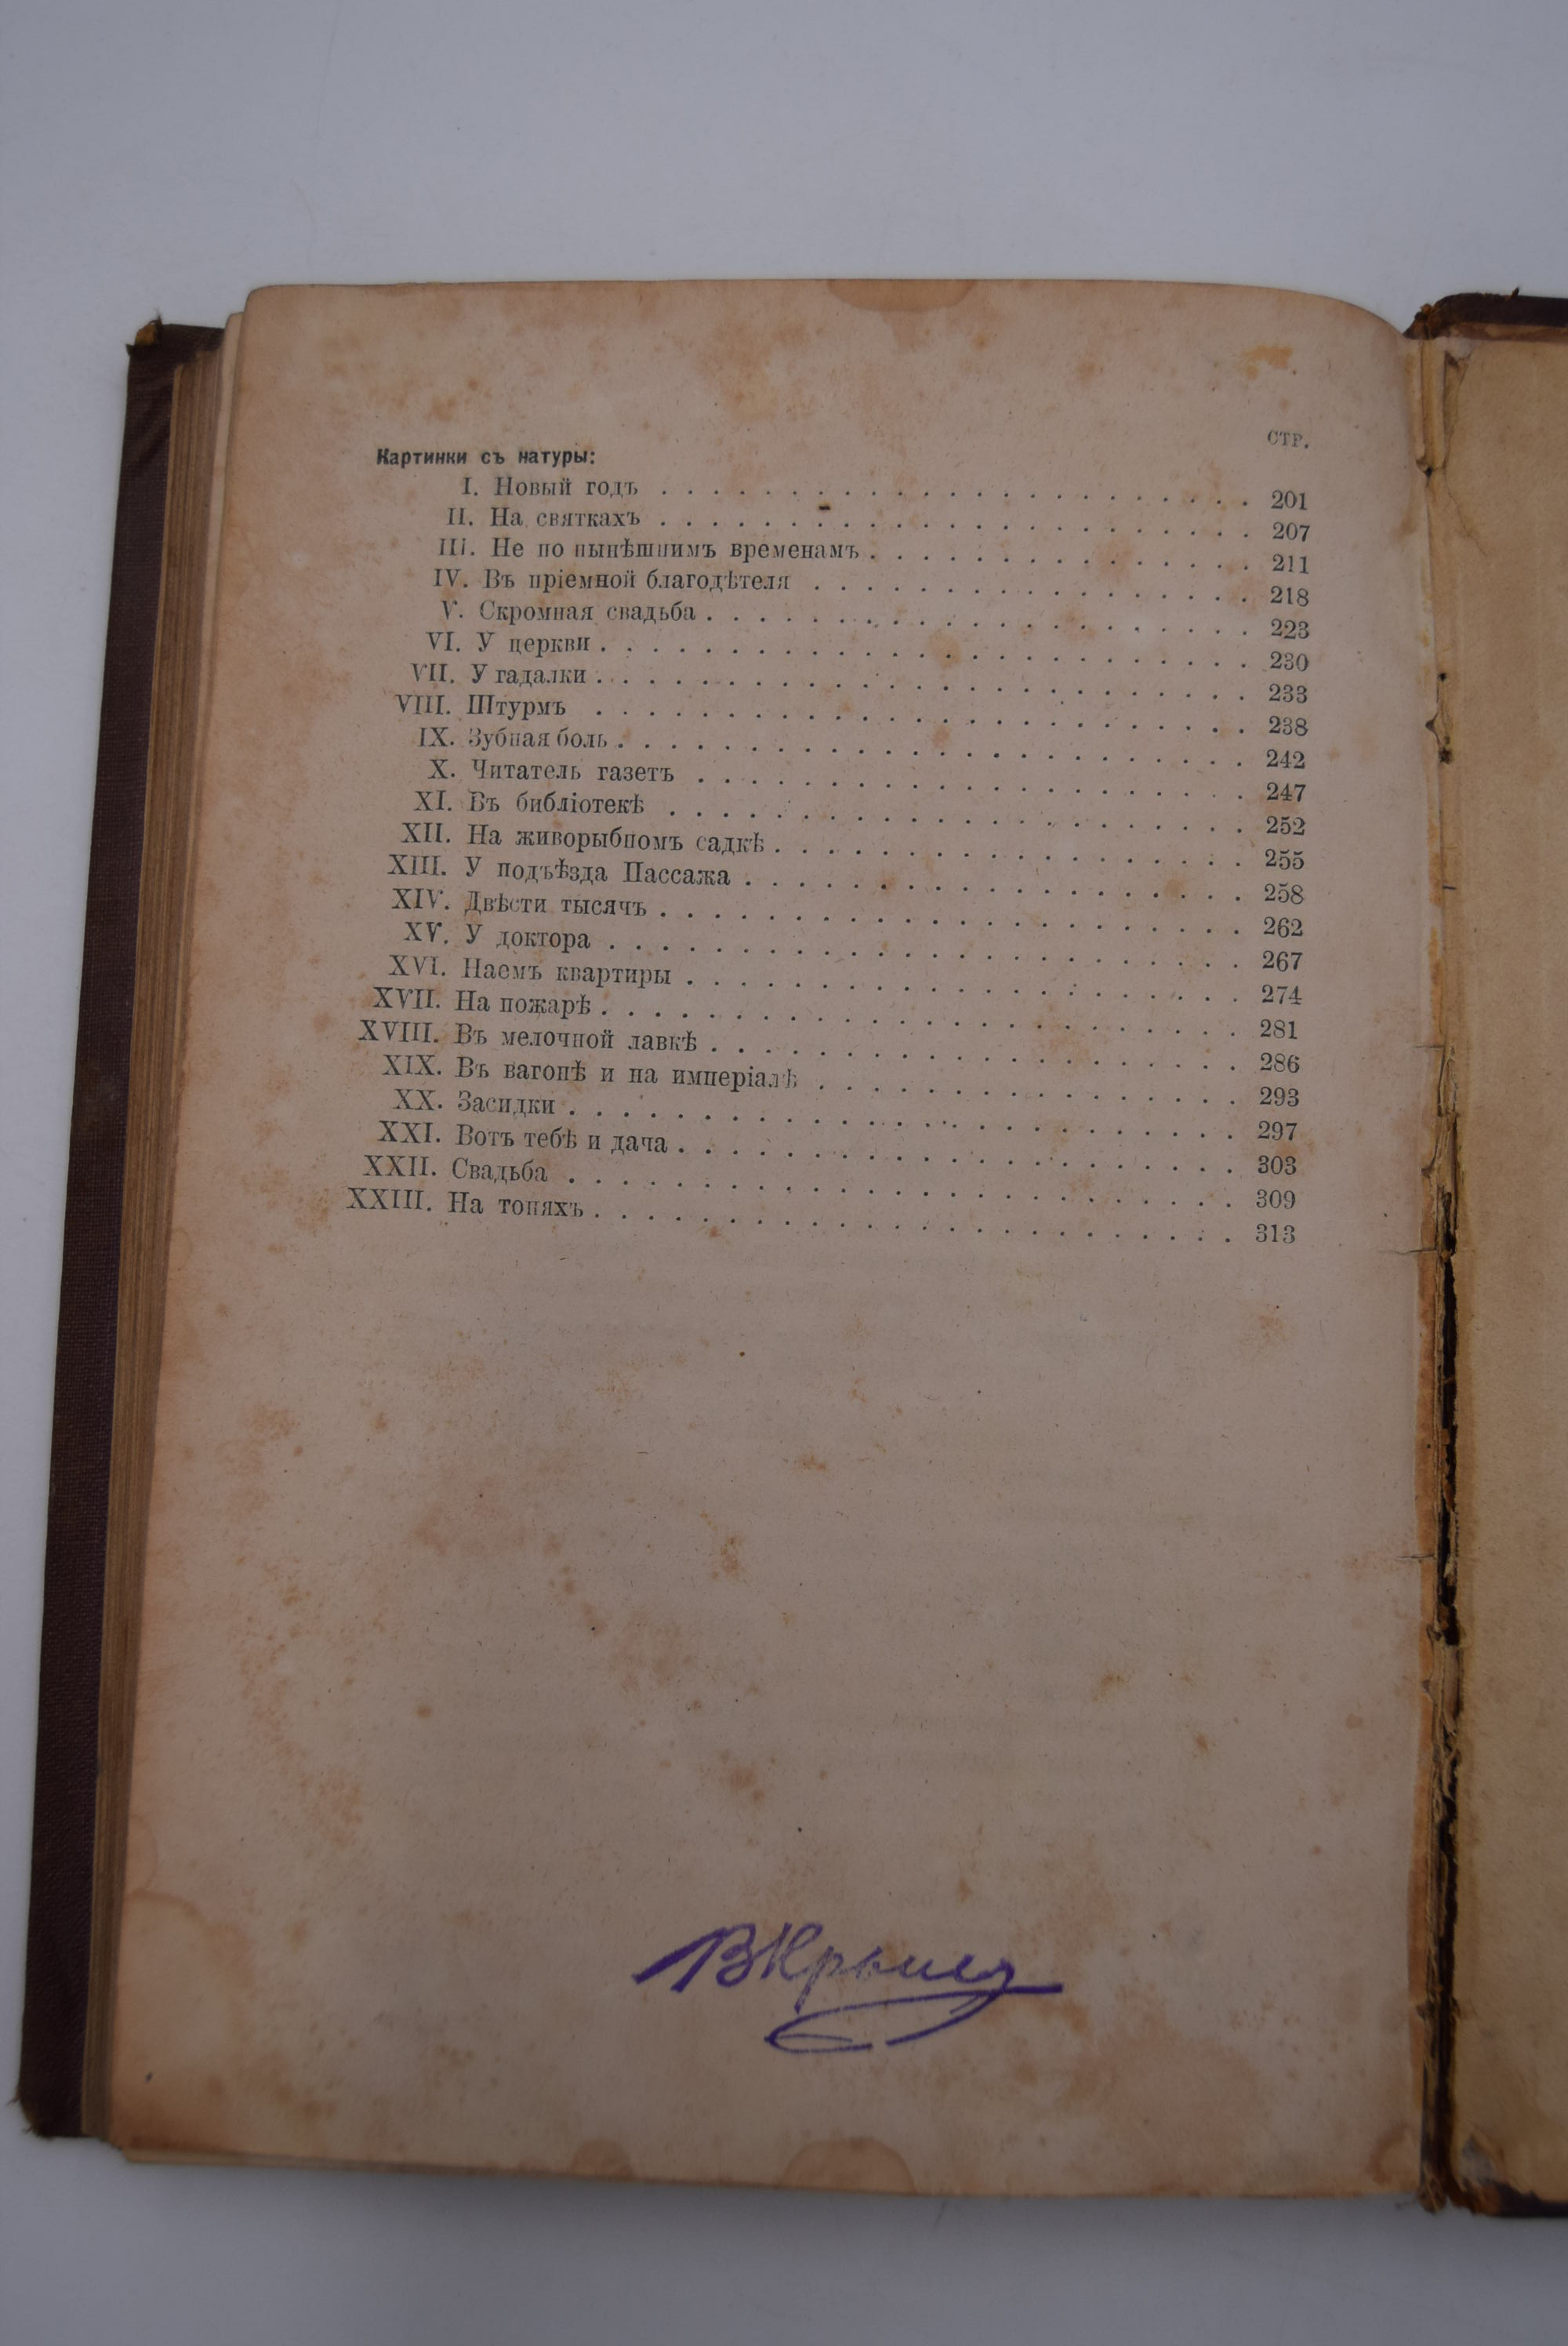 СТР.
Картинки съ натуры:
I. Новый годъ . . . . . . . . . . . . . . . . . . . . . . . 201
II. На святкахъ . . . . . . . . . . . . . . . . . . . . . . . 207
III. Не по нынѣшнимъ временамъ . . . . . . . . . . . . . . . 211
IV. Въ пріемной благодѣтеля . . . . . . . . . . . . . . . . . 218
V. Скромная свадьба . . . . . . . . . . . . . . . . . . . . . 223
VI. У церкви . . . . . . . . . . . . . . . . . . . . . . . . . 230
VII. У гадалки . . . . . . . . . . . . . . . . . . . . . . . . . 233
VIII. Штурмъ . . . . . . . . . . . . . . . . . . . . . . . . . 238
IX. Зубная боль . . . . . . . . . . . . . . . . . . . . . . . . 242
X. Читатель газетъ . . . . . . . . . . . . . . . . . . . . . 247
XI. Въ библіотекѣ . . . . . . . . . . . . . . . . . . . . . . 252
XII. На живорыбномъ садкѣ . . . . . . . . . . . . . . . . . . 255
XIII. У подъѣзда Пассажа . . . . . . . . . . . . . . . . . . . 258
XIV. Двѣсти тысячъ . . . . . . . . . . . . . . . . . . . . . . 262
XV. У доктора . . . . . . . . . . . . . . . . . . . . . . . . 267
XVI. Наемъ квартиры . . . . . . . . . . . . . . . . . . . . . 274
XVII. На пожарѣ . . . . . . . . . . . . . . . . . . . . . . . . 281
XVIII. Въ мелочной лавкѣ . . . . . . . . . . . . . . . . . . . . 286
XIX. Въ вагонѣ и на имперіалѣ . . . . . . . . . . . . . . . . 293
XX. Засидки . . . . . . . . . . . . . . . . . . . . . . . . . 297
XXI. Вотъ тебѣ и дача . . . . . . . . . . . . . . . . . . . . . 303
XXII. Свадьба . . . . . . . . . . . . . . . . . . . . . . . . . 309
XXIII. На тоняхъ . . . . . . . . . . . . . . . . . . . . . . . . 313